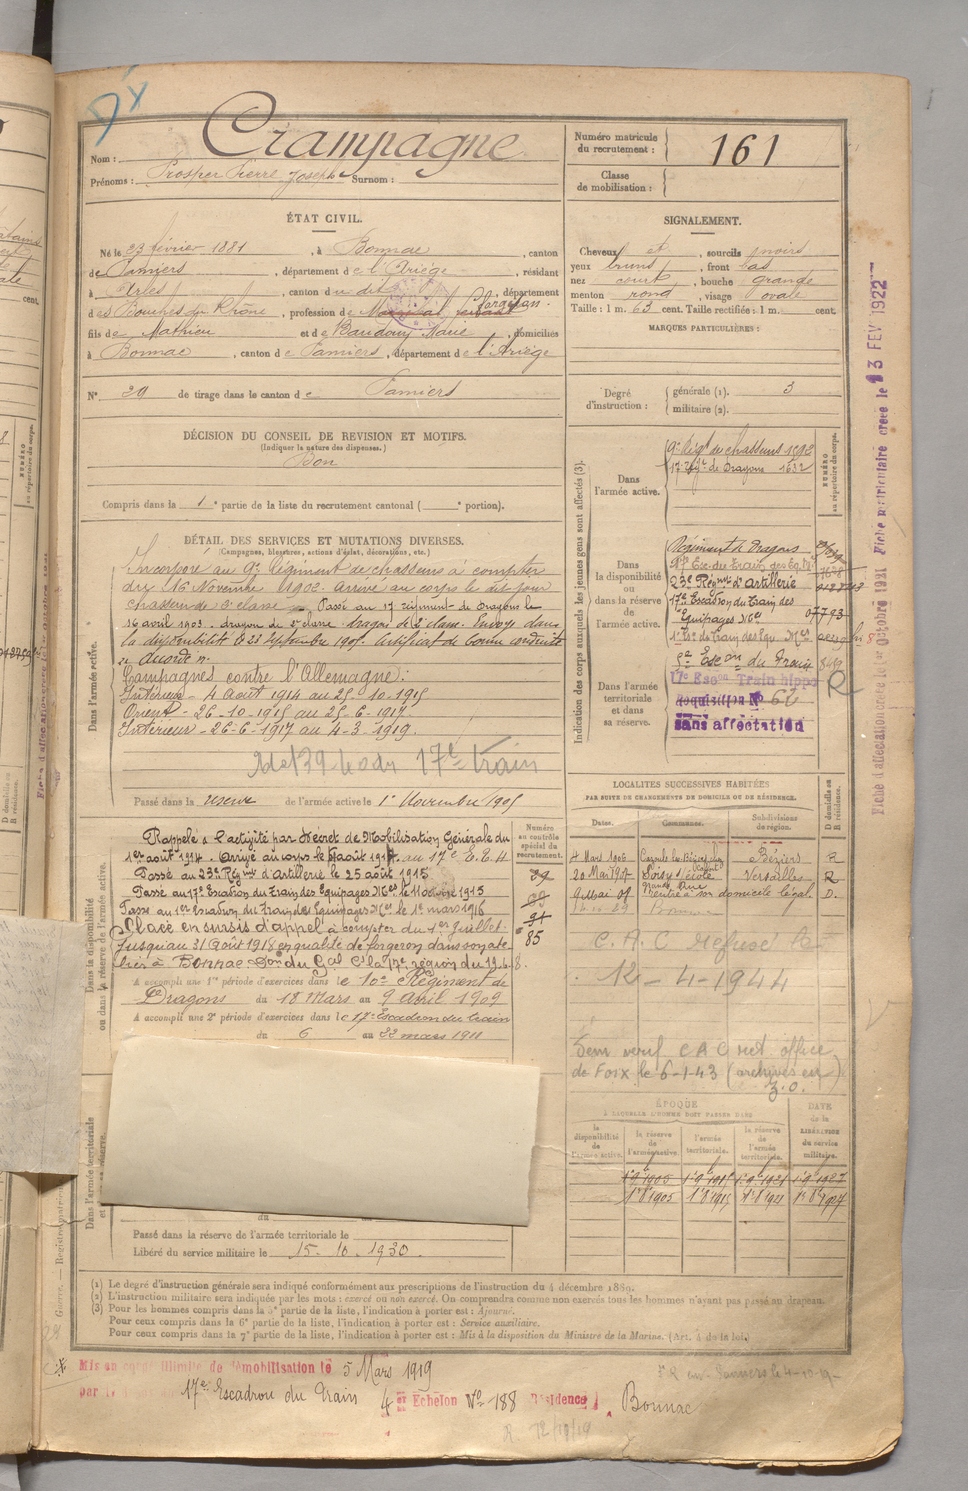 Nom : Crampagne
Prénoms : Prosper Pierre Joseph Surnom :
Numéro matricule du recrutement : 161
Classe de mobilisation :
ÉTAT CIVIL.
Né le 23 février 1881, à Bonnac, canton
de Pamiers, département de l'Ariège, résidant
à Arles, canton du dit, département
des Bouches du Rhône, profession de
fils de Mathieu et de Baudouy Marie, domiciliés
à Bonnac, canton de Pamiers, département de l'Ariège
N° 29 de tirage dans le canton de Pamiers
SIGNALEMENT.
Cheveux et, sourcils noirs
yeux bruns, front bas
nez court, bouche grande
menton rond, visage ovale
Taille : 1 m. 63 cent. Taille rectifiée : 1 m. cent.
MARQUES PARTICULIÈRES :
Degré d'instruction : générale (1). 3
militaire (2).
DÉCISION DU CONSEIL DE REVISION ET MOTIFS.
(Indiquer la nature des dispenses.)
Bon
Compris dans la 1e partie de la liste du recrutement cantonal ( e portion).
DÉTAIL DES SERVICES ET MUTATIONS DIVERSES.
(Campagnes, blessures, actions d'éclat, décorations, etc.)
Incorporé au 9e Régiment de chasseurs à compter
du 16 Novembre 1902. Arrivé au corps le dit jour
chasseur de 2e classe. Passé au 17e régiment de Dragons le
16 avril 1903. dragon de 2e classe. Envoyé dans
la disponibilité le 23 septembre 1905. Certificat de bonne conduite
accordé.
Campagnes contre l'Allemagne :
Intérieur - 4 Août 1914 au 25-10-1915
Orient - 26-10-1915 au 25-6-1917
Intérieur - 26-6-1917 au 4-3-1919.
17e train
Passé dans la réserve de l'armée active le 1er Novembre 1905
Dans l'armée active.
Indication des corps auxquels les jeunes gens sont affectés (3).
NUMÉRO au répertoire du corps.
Dans l'armée active.
9e Régt de chasseurs 1592
17e Régt de Dragons 1632
Dans la disponibilité ou dans la réserve de l'armée active.
Régiment de Dragons
23e Régmt d'Artillerie
17e Escadron du Train des
Equipages Mres 07793
Dans l'armée territoriale et dans sa réserve.
Escon du Train
17e Escon Train hippo R
Réquisition No 60
sans affectation
Fiche d'affectation créée le 1er Octobre 1921 Fiche matriculaire créée le 13 FEV 1922
Dans la disponibilité ou dans la réserve de l'armée active.
Rappelé à l'activité par Décret de Mobilisation Générale du
1er août 1914. Arrivé au corps le 4 août 1914 au 17e E.T.E.M
Passé au 23e Régmt d'Artillerie le 25 août 1915
Passé au 17e Escadron du Train des Equipages Mres le 11 octobre 1915
Passé au 1er Escadron du Train des Equipages Mres le 1er mars 1916
Placé en sursis d'appel à compter du 1er Juillet
jusqu'au 31 Août 1918 en qualité de forgeron dans son ate-
lier à Bonnac Don du Gal Ct la 17e région du 19.6.18.
A accompli une 1re période d'exercices dans le 10e Régiment de
Dragons du 18 Mars au 9 Avril 1909
A accompli une 2e période d'exercices dans le 17e Escadron du train
du 6 au 22 mars 1911
Numéro au contrôle spécial du recrutement.
85
Dans l'armée territoriale
du au
Passé dans la réserve de l'armée territoriale le
Libéré du service militaire le 15-10-1930.
LOCALITÉS SUCCESSIVES HABITÉES
PAR SUITE DE CHANGEMENTS DE DOMICILE OU DE RÉSIDENCE.
Dates. Communes. Subdivisions de région. D domicile ou R résidence.
4 Mars 1906 Béziers R
20 Mai 1907 Versailles R
rentre à son domicile légal. D.
C.A.C refusé le
12-4-1944
Dem verif C A C
de Foix le 6-1-43 (archives en
z.o.
ÉPOQUE
À LAQUELLE L'HOMME DOIT PASSER DANS
DATE de la LIBÉRATION du service militaire.
la disponibilité de l'armée active. la réserve de l'armée active. l'armée territoriale. la réserve de l'armée territoriale.
(1) Le degré d'instruction générale sera indiqué conformément aux prescriptions de l'instruction du 4 décembre 1889.
(2) L'instruction militaire sera indiquée par les mots : exercé ou non exercé. On comprendra comme non exercés tous les hommes n'ayant pas passé au drapeau.
(3) Pour les hommes compris dans la 5e partie de la liste, l'indication à porter est : Ajourné.
Pour ceux compris dans la 6e partie de la liste, l'indication à porter est : Service auxiliaire.
Pour ceux compris dans la 7e partie de la liste, l'indication à porter est : Mis à la disposition du Ministre de la Marine. (Art. 4 de la loi.)
Mis en congé illimité de démobilisation le 5 Mars 1919
par le 17e Escadron du Train 4e Echelon No 188 Résidence Bonnac